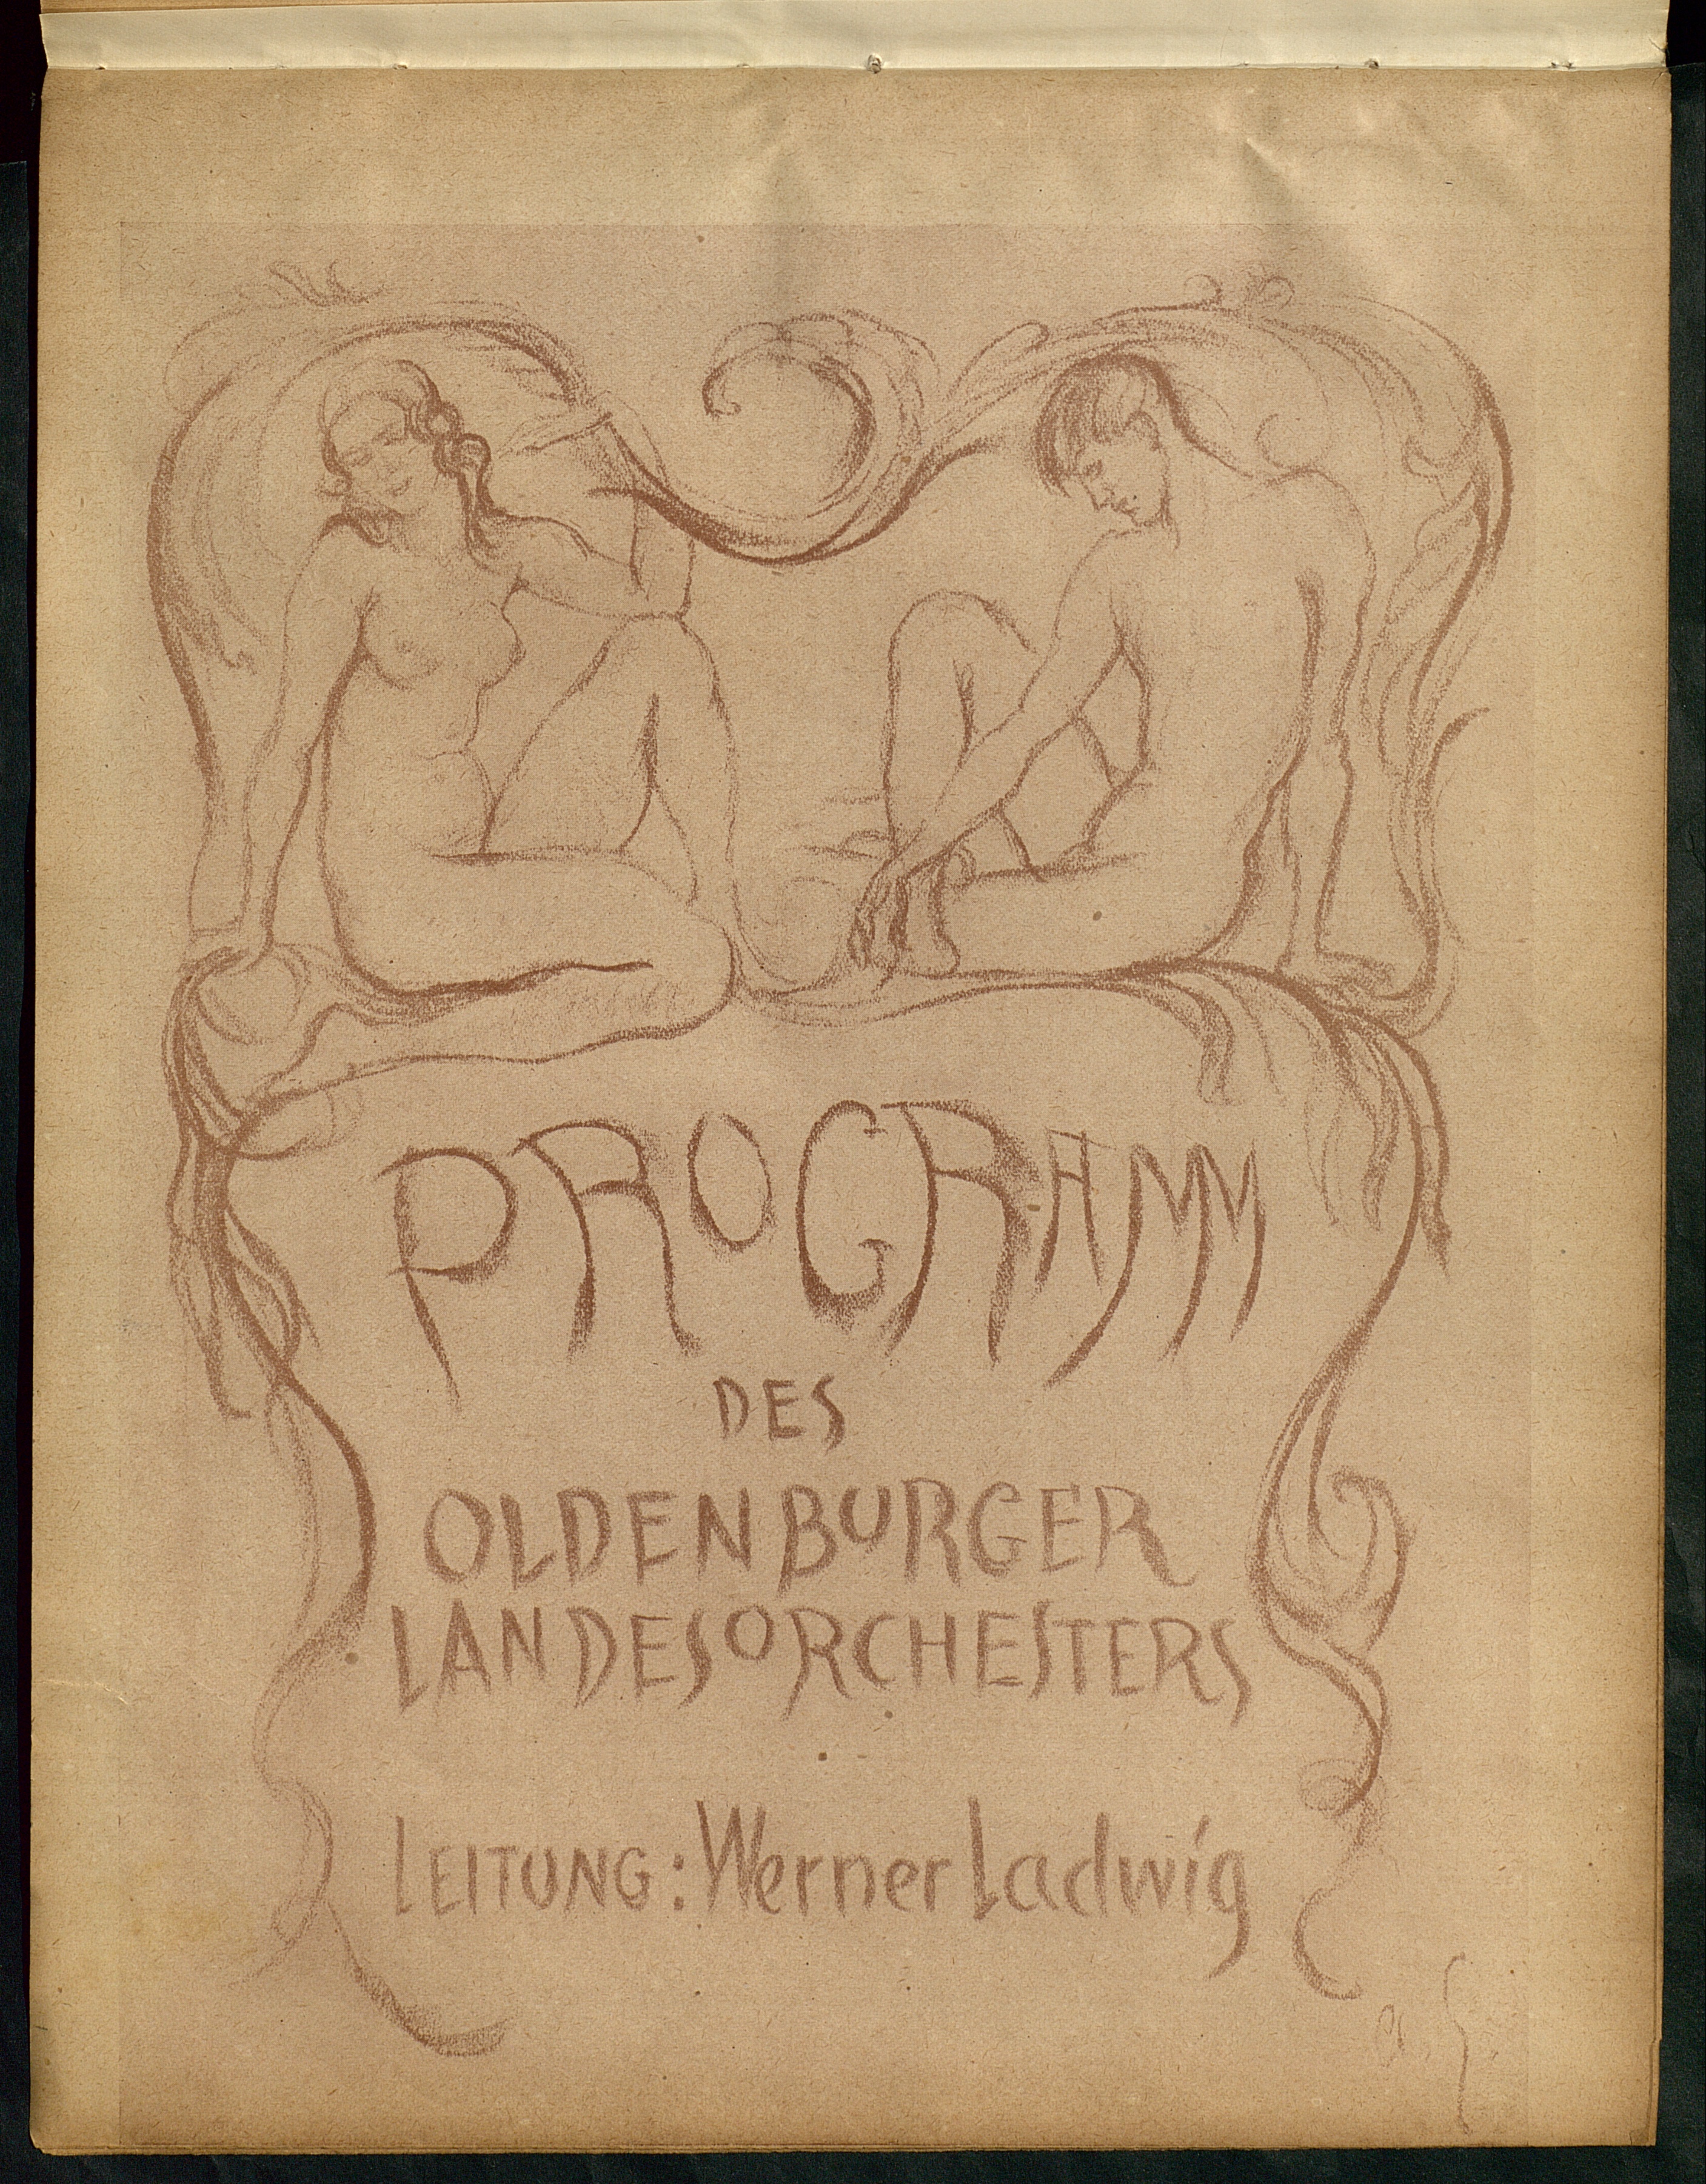 PROGRAMM
DES
OLDENBURGER
LANDESORCHESTERS
LEITUNG: Werner Ladwig